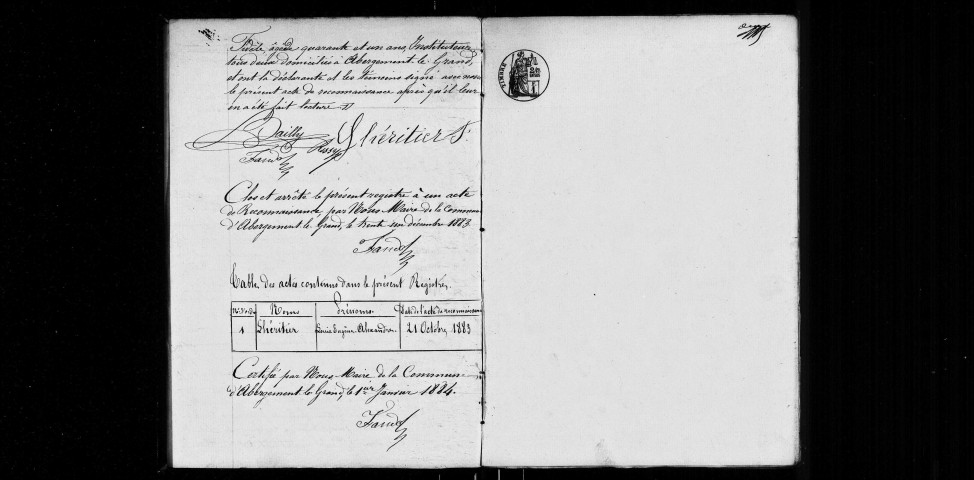 Fidèle, âgé de quarante et un ans, Instituteur,
tous deux domiciliés à Abergement le Grand,
et ont la déclarante et les témoins signé avec nous
le présent acte de reconnaissance après qu'il leur
en a été fait lecture.
Bailly Lhéritier
Clos et arrêté le présent registre à un acte
de Reconnaissance, par Nous Maire de la Commune
d'Abergement le Grand, le trente un décembre 1883.
Table des actes contenus dans le présent Registre.
Noms Prénoms Date de l'acte de reconnaissance
1 Lhéritier Eugène Alexandre 21 Octobre 1883
Certifié par Nous Maire de la Commune
d'Abergement le Grand, le 1er Janvier 1884.
TIMBRE